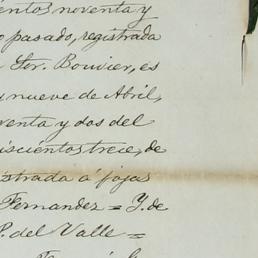 entos noventa y
o pasado, registrada
Sor. Bouvier, es
y nueve de Abril,
venta y dos del
iscientos trece, de
istrada a fojas
Fernandez = Y. de
P. del Valle =